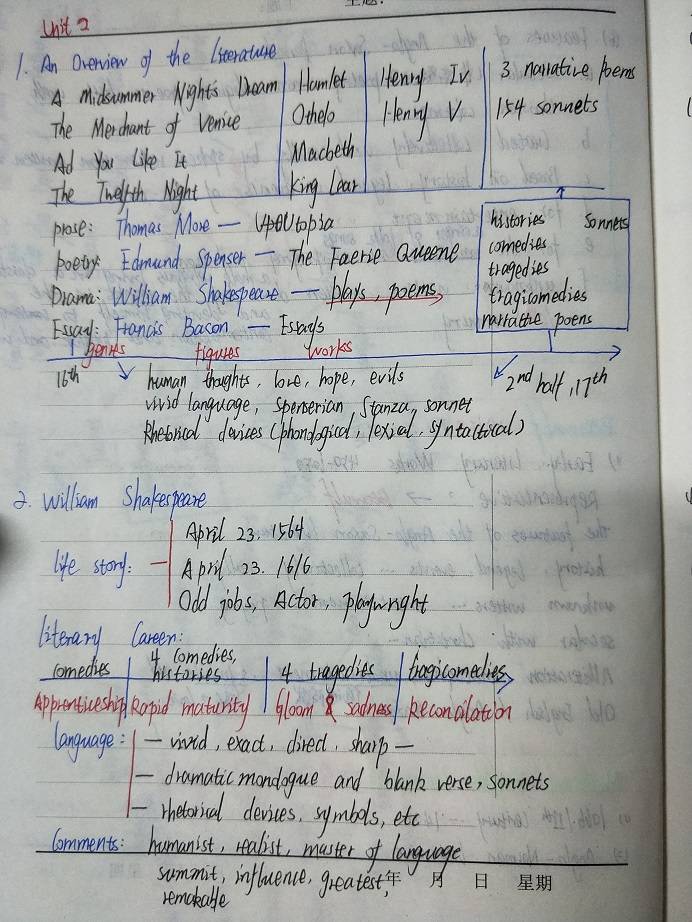 Unit 2
1. An Overview of the Literature
A Midsummer Night's Dream | Hamlet | Henry IV | 3 narrative poems
The Merchant of Venice | Othelo | Henry V | 154 sonnets
Ad You Like It | Macbeth
The Twelfth Night | King Lear
prose: Thomas More — Utopia
poetry: Edmund Spenser — The Faerie Queene
Drama: William Shakespeare — plays, poems
Essay: Francis Bacon — Essays
histories sonnets
comedies
tragedies
tragicomedies
narrative poems
genres figures works
16th human thoughts, love, hope, evils
2nd half, 17th
vivid language, Spenserian, Stanza, sonnet
Rhetorical devices (phonological, lexical, syntactical)
2. William Shakespeare
life story: — April 23. 1564
April 23. 1616
Odd jobs, Actor, playwright
literary Career:
comedies | 4 comedies, histories | 4 tragedies | tragicomedies
Apprenticeship | Rapid maturity | Gloom & sadness | Reconcilation
language: — vivid, exact, direct, sharp —
— dramatic monologue and blank verse, sonnets
— rhetorical devices, symbols, etc
Comments: humanist, realist, master of language
summit, influence, greatest,
remakable
年 月 日 星期